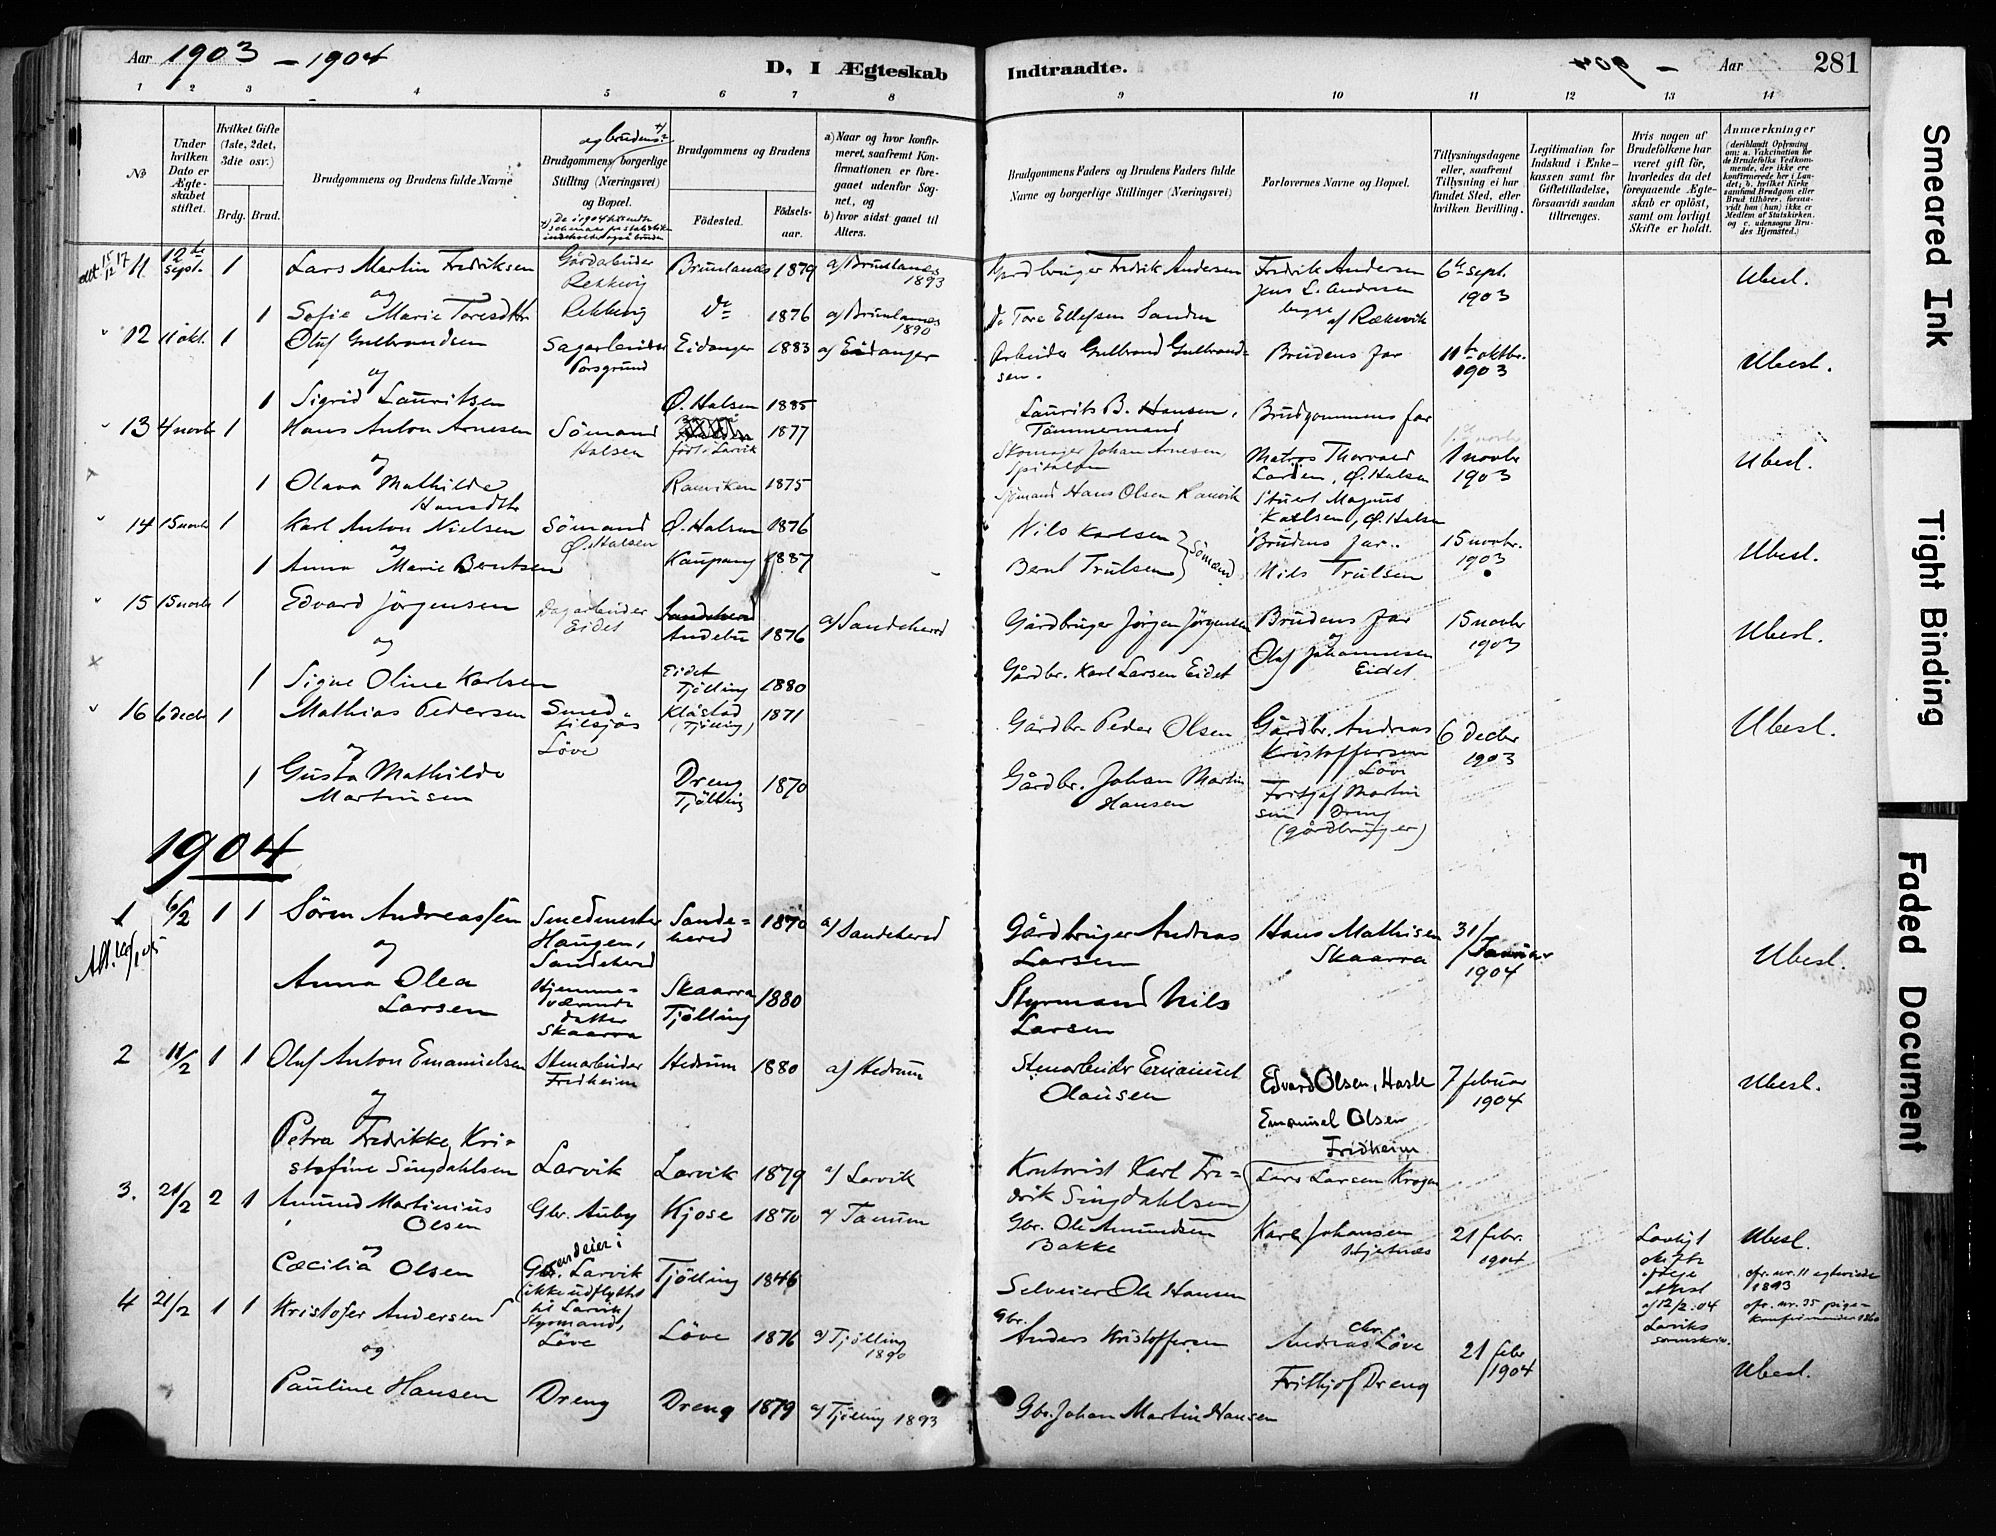 Aar 1903 - 1904
D, I Ægteskab
Indtraadte.
- 904
Aar
281
1 2 3 4 5 6 7 8 9 10 11 12 13 14
No
Under hvilken Dato er Ægteskabet stiftet.
Hvilket Gifte (1ste, 2det, 3die osv.)
Brdg. Brud.
Brudgommens og Brudens fulde Navne
og brudens
Brudgommens borgerlige Stilling (Næringsvei) og Bopæl.
Brudgommens og Brudens
Födested.
Födsels-aar.
a) Naar og hvor konfirmeret, saafremt Konfirmationen er foregaaet udenfor Sognet, og
b) hvor sidst gaaet til Alters.
Brudgommens Faders og Brudens Faders fulde Navne og borgerlige Stillinger (Næringsvei)
Forlovernes Navne og Bopæl.
Tillysningsdagene eller, saafremt Tillysning ei har fundet Sted, efter hvilken Bevilling.
Legitimation for Indskud i Enkekassen samt for Giftetilladelse, forsaavidt saadan tiltrænges.
Hvis nogen af Brudefolkene har været gift för, hvorledes da det foregaaende Ægteskab er oplöst, samt om lovligt Skifte er holdt.
Anmærkninger (deriblandt Oplysning om: a. Vakcination for de Brudefolks Vedkommende, der ikke ere konfirmerede her i Landet; b. hvilket Kirkesamfund Brudgom eller Brud tilhörer, forsaavidt han (hun) ikke er Medlem af Statskirken, og c. udensogns Brudes Hjemsted.)
11 12te Sept. 1 Lars Martin Fredriksen Gårdarbeider Rekkevig Brunlanes 1879 a) Brunlanes 1893 Gårdbruger Fredrik Andersen Fredrik Andersen 6te sept. 1903 Ubesl.
og
Jens L. Andersen
1 Sofie Marie Toresdtr Rekkevig do 1876 a) Brunlanes 1890 Do Tore Ellefsen Sanden begge af Rækevik
12 11 okt. 1 Oluf Gulbrandsen Sagarbeider Porsgrund Eidanger 1883 a) Eidanger Arbeider Gulbrand Gulbrandsen. Brudens far 11te oktbr. 1903 Ubesl.
og
1 Sigrid Lauritsen Ø. Halsen 1885 Laurits B. Hansen, Tömmermand Brudgommens far
13 4 novb 1 Hans Anton Arnesen Sömand Halsen födt i Larvik 1877 Skomager Johan Arnesen, Matros Thorvald Larsen, Ø. Halsen 1 novbr 1903 Ubesl.
og
1 Olava Mathilde Hansdtr Ranviken 1875 Sjömand Hans Olsen Ranvik Stuet Magnus Karlsen, Ø. Halsen
14 15 novb 1 Karl Anton Nielsen Sömand Ø. Halsen Ø. Halsen 1876 Nils Karlsen Brudens far 15 novbr. 1903 Ubesl.
og
1 Anna Marie Berntsen Kaupang 1887 Bernt Trulsen Sömænd Nils Trulsen
15 15 novb 1 Edvard Jörgensen Dagarbeider Eidet Sandeherred Andebu 1876 a) Sandeherred Gårdbruger Jörgen Jörgensen Brudens far 15 novbr 1903 Ubesl.
og
og
1 Signe Oline Karlsen Eidet Tjölling 1880 Gårdbr. Karl Larsen Eidet Oluf Johannesen Eidet
16 6 decb 1 Mathias Pedersen Smed tilsjös Löve Klåstad (Tjölling) 1871 Gårdbr. Peder Olsen Gårdbr. Andreas Kristoffersen Löve 6 decbr 1903 Ubesl.
og
1 Gusta Mathilde Martinsen Dreng Tjölling 1870 Gårdbr. Johan Martin Hansen Fritjof Martinsen Dreng (gårdbruger)
1904
1 6/2 1 1 Sören Andreassen Smedmester Haugen, Sandeherred Sandeherred 1870 a) Sandeherred Gårdbruger Andreas Larsen Hans Mathisen Skaarra 31/Januar 1904 Ubesl.
og
Anna Olea Larsen Hjemmeværende datter Skaarra Skaarra Tjölling 1880 Styrmand Nils Larsen
2 11/2 1 1 Oluf Anton Emanuelsen Stenarbeider Fredheim Hedrum 1880 a) Hedrum Stenarbeider Emanuel Olausen Edvard Olsen, Hasle 7 februar 1904 Ubesl.
og
Emanuel Olsen Fridheim
Petra Fredrikke Kristofine Singdahlsen Larvik Larvik 1879 a) Larvik Kontorist Karl Fredrik Singdahlsen Lars Larsen Krogen
3. 21/2 2 1 Amund Martinius Olsen Gbr. Auby Kjose 1870 a) Tanum Gbr. Ole Amundsen Bakke Karl Johansen Hjertnes 21 febr. 1904 Lovligt skifte ifölge attest af 12/2. 04 Larviks sorenskriv. Ubesl.
og
Cæcilia Olsen Gårdeier i Larvik (ikke udflyttet til Larvik) Tjölling 1846 Selveier Ole Hansen cfr. nr. 11 1893 cfr. nr. 35 pige-konfirmander 1860
4 21/2 1 1 Kristofer Andersen Styrmand, Löve Löve 1876 a) Tjölling 1890 Gbr. Anders Kristoffersen Andreas Chr. Löve 21 febr 1904 Ubesl.
og
Frithjof Dreng
Pauline Hansen Dreng Dreng 1879 a) Tjölling 1893 Gbr. Johan Martin Hansen
Smeared Ink
Tight Binding
Faded Document